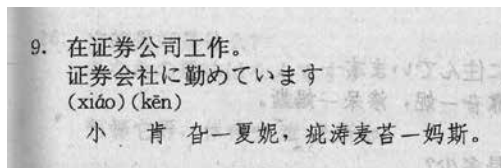 9. 在证券公司工作。
证券会社に勤めています
(xiáo)(kēn)
小 肯 旮一夏妮，疵涛麦苔一妈斯。